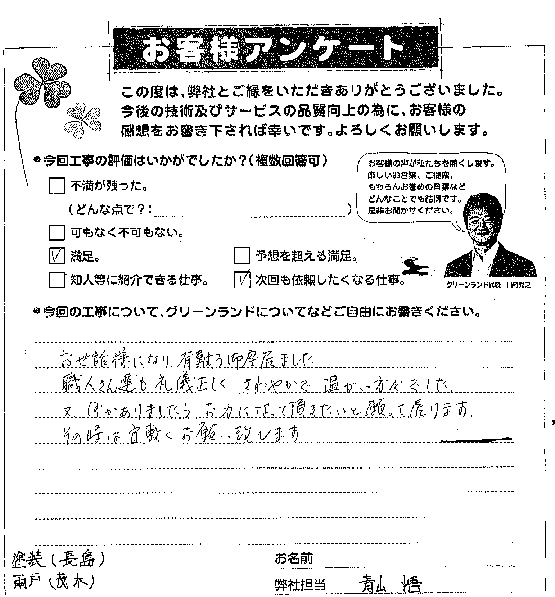 お客様アンケート
この度は、弊社とご縁をいただきありがとうございました。
今後の技術及びサービスの品質向上の為に、お客様の
感想をお書き下されば幸いです。よろしくお願いします。
今回工事の評価はいかがでしたか?(複数回答可)
不満が残った。
(どんな点で?:
)
可もなく不可もない。
満足。
予想を超える満足。
知人等に紹介できる仕事。
次回も依頼したくなる仕事。
お客様の声が私たちを動かします。
厳しいお言葉、ご提案、
もちろんお褒めの言葉など
どんなことでも結構です。
是非お聞かせください。
グリーンランド
今回の工事について、グリーンランドについてなどご自由にお書きください。
お世話様になり有難う御座居ました
職人さん達も礼儀正しく さわやかで 温かい方々でした
又 何かありましたら お力になって頂きたいと願って居ります
その時は宜敷くお願い致します
塗装(長島)
雨戸(茂木)
お名前
弊社担当 青山 悟